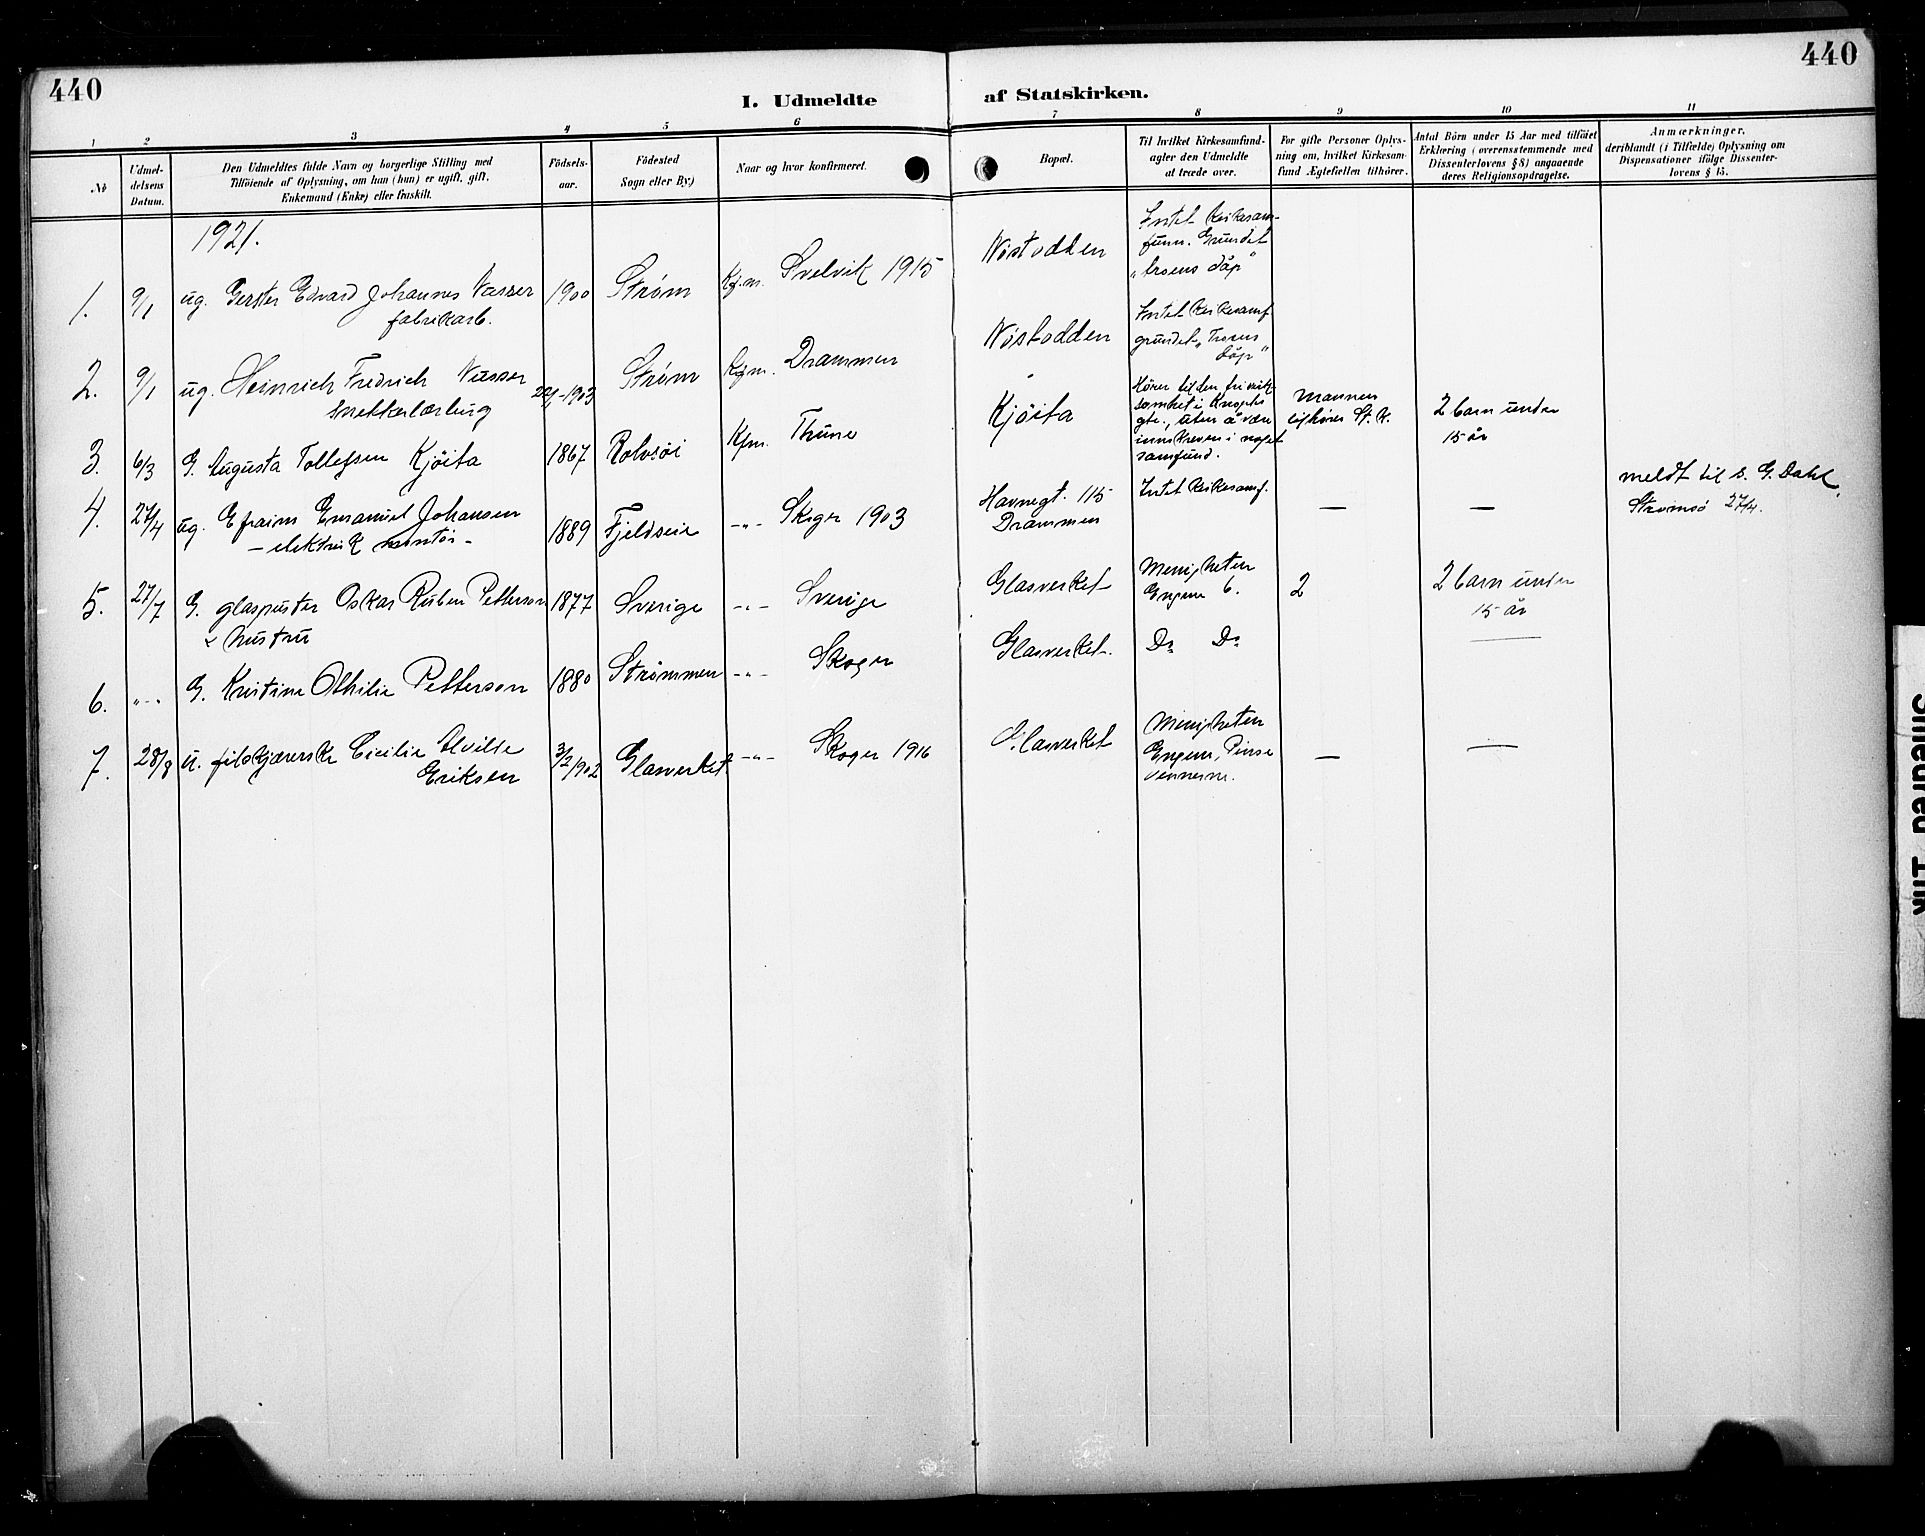 440
440
I. Udmeldte af Statskirken.
1 2 3 4 5 6 7 8 9 10 11
No
Udmel-
delsens
Datum.
Den Udmeldtes fulde Navn og borgerlige Stilling med
Tilföiende af Oplysning, om han (hun) er ugift, gift,
Enkemand (Enke) eller fraskilt.
Födsels-
aar.
Födested
Sogn eller By.)
Naar og hvor konfirmeret.
Bopæl.
Til hvilket Kirkesamfund-
agter den Udmeldte
at træde over.
For gifte Personer Oplys-
ning om, hvilket Kirkesam-
fund Ægtefællen tilhörer.
Antal Börn under 15 Aar med tilföiet
Erklæring (overensstemmende med
Dissenterlovens §8) angaaende
deres Religionsopdragelse.
Anmærkninger,
deriblandt (i Tilfælde) Oplysning om
Dispensationer ifölge Dissenter-
lovens § 15.
1921.
1. 9/1 ug. Edvard Johannes
fabrikarb.
1900 Strøm Kfm. Svelvik 1915
Nöstodden
Intet kirkesam-
funn. Grundet
"troens dåp"
2. 9/1 ug. Heinrich Fredrich Nusser
snekkerlærling
1903 Strøm Kfm. Drammen
Nöstodden
Intet kirkesamf
grundet "Troens
dåp"
3. 6/3 G. Augusta Tollefsen Kjöita
1867 Rolvsöi Kfm. Thune
Kjöita
Hörer til den fri virk-
somhet i
gt., uten å være
innskreven i noget
samfund.
Mannen
tilhörer St. K.
2 barn under
15 år
4. 27/4 ug. Efraim Emanuel Johansen
- elektrisk montör -
1889 Fjeldseie -"- Skoger 1903
Havnegt. 115
Drammen
Intet kirkesamf.
— —
meldt til s. G. Dahl,
Strömsö 27/4.
5. 27/7 G. glaspuster Oskar Ruben Petterson
& hustru
1877 Sverige -"- Sverige
Glasverket
Menigheten
Engene 6.
2
2 barn under
15 år
6. -"- G. Kristine Othilie Petterson
1880 Strømmen -"- Skoger
Glasverket. Do Do —
7. 28/8 u. Cecilie Alvilde
Eriksen
3/2 1902 Glasverket -"- Skoger 1916
Glasverket
Menigheten
Engene, Pinse
vennerne.
— —